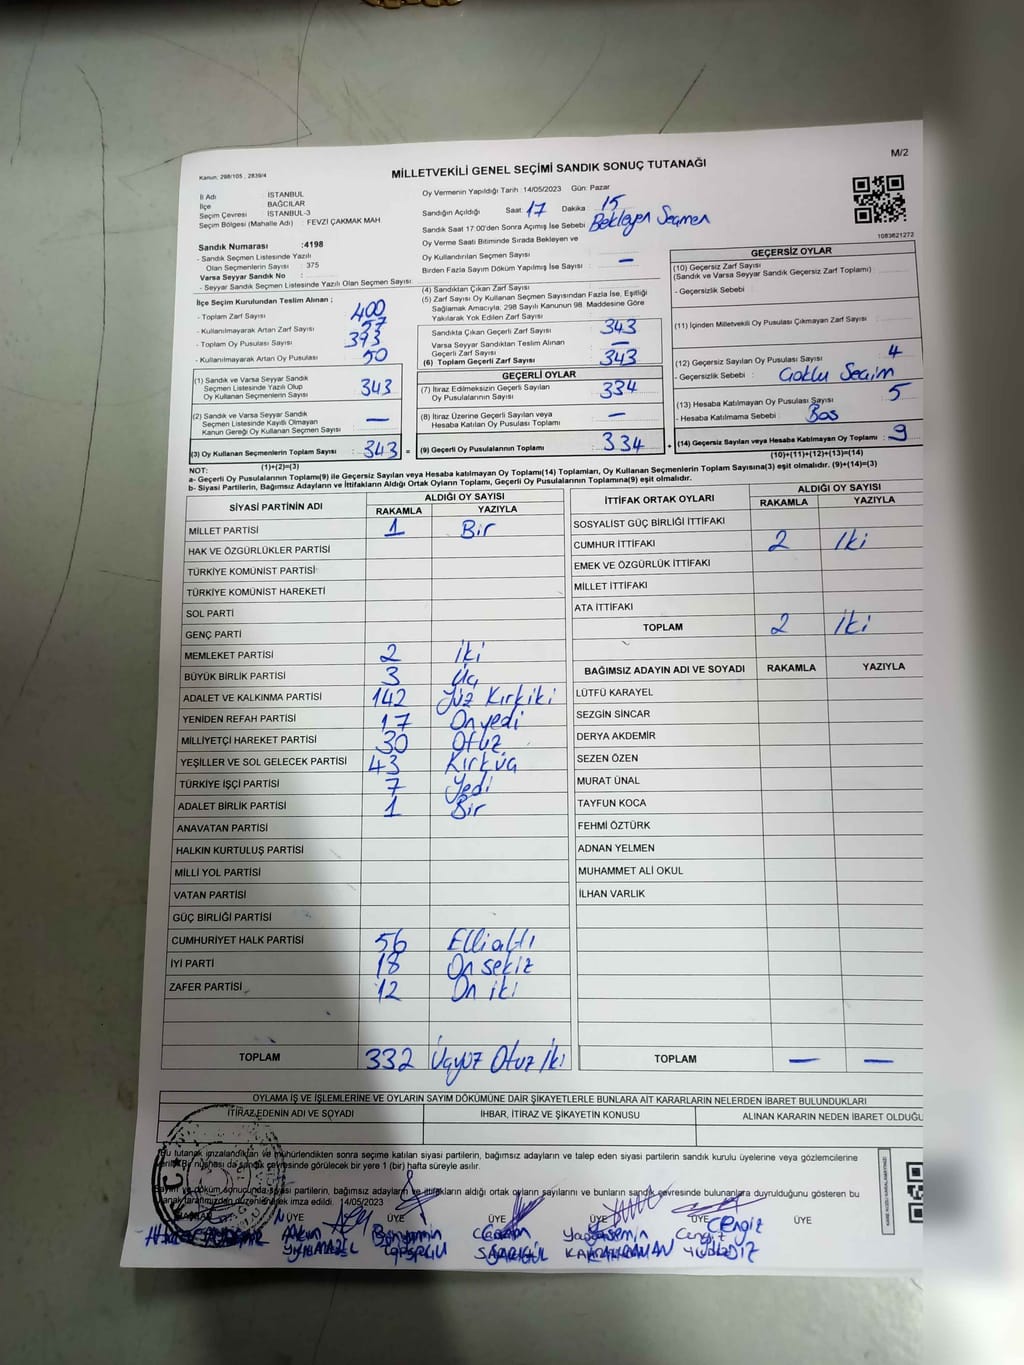 M/2
Kanun, 298/105 , 2839/4
MİLLETVEKİLİ GENEL SEÇİMİ SANDIK SONUÇ TUTANAĞI
İl Adı İSTANBUL
İlçe BAĞCILAR
Seçim Çevresi İSTANBUL-3
Seçim Bölgesi (Mahalle Adı) : FEVZİ ÇAKMAK MAH
Sandık Numarası :4198
- Sandık Seçmen Listesinde Yazılı
Olan Seçmenlerin Sayısı : 375
Varsa Seyyar Sandık No :
- Seyyar Sandık Seçmen Listesinde Yazılı Olan Seçmen Sayısı
Oy Vermenin Yapıldığı Tarih : 14/05/2023 Gün: Pazar
Sandığın Açıldığı Saat: 17 Dakika 15
Sandık Saat 17:00'den Sonra Açımış İse Sebebi Bekleyen Seçmen
Oy Verme Saati Bitiminde Sırada Bekleyen ve
Oy Kullandırılan Seçmen Sayısı : —
Birden Fazla Sayım Döküm Yapılmış İse Sayısı :
1083621272
İlçe Seçim Kurulundan Teslim Alınan ;
- Toplam Zarf Sayısı : 400
- Kullanılmayarak Artan Zarf Sayısı : 57
- Toplam Oy Pusulası Sayısı : 393
- Kullanılmayarak Artan Oy Pusulası : 50
(1) Sandık ve Varsa Seyyar Sandık
Seçmen Listesinde Yazılı Olup
Oy Kullanan Seçmen Sayısı : 343
(2) Sandık ve Varsa Seyyar Sandık
Seçmen Listesinde Kayıtlı Olmayan
Kanun Gereği Oy Kullanan Seçmen Sayısı : —
(3) Oy Kullanan Seçmenlerin Toplam Sayısı : 343 =
(1)+(2)=(3)
(4) Sandıktan Çıkan Zarf Sayısı :
(5) Zarf Sayısı Oy Kullanan Seçmen Sayısından Fazla İse, Eşitliği
Sağlamak Amacıyla; 298 Sayılı Kanunun 98. Maddesine Göre
Yakılarak Yok Edilen Zarf Sayısı :
Sandıkta Çıkan Geçerli Zarf Sayısı : 343
Varsa Seyyar Sandıktan Teslim Alınan
Geçerli Zarf Sayısı : —
(6) Toplam Geçerli Zarf Sayısı : 343
GEÇERLİ OYLAR
(7) İtiraz Edilmeksizin Geçerli Sayılan
Oy Pusulasının Sayısı : 334
(8) İtiraz Üzerine Geçerli Sayılan veya
Hesaba Katılan Oy Pusulası Toplamı : —
(9) Geçerli Oy Pusulalarının Toplamı : 334 +
GEÇERSİZ OYLAR
(10) Geçersiz Zarf Sayısı
(Sandık ve Varsa Seyyar Sandık Geçersiz Zarf Toplamı) :
- Geçersizlik Sebebi :
(11) İçinden Milletvekili Oy Pusulası Çıkmayan Zarf Sayısı :
(12) Geçersiz Sayılan Oy Pusulası Sayısı : 4
- Geçersizlik Sebebi : Çoklu Seçim
(13) Hesaba Katılmayan Oy Pusulası Sayısı : 5
- Hesaba Katılmama Sebebi : Boş
(14) Geçersiz Sayılan veya Hesaba Katılmayan Oy Toplamı : 9
(10)+(11)+(12)+(13)=(14)
NOT:
a- Geçerli Oy Pusulalarının Toplamı(9) ile Geçersiz Sayılan veya Hesaba katılmayan Oy Toplamı(14) Toplamları, Oy Kullanan Seçmenlerin Toplam Sayısına(3) eşit olmalıdır. (9)+(14)=(3)
b- Siyasi Partilerin, Bağımsız Adayların ve İttifakların Aldığı Ortak Oyların Toplamı, Geçerli Oy Pusulalarının Toplamına(9) eşit olmalıdır.
SİYASİ PARTİNİN ADI ALDIĞI OY SAYISI
RAKAMLA YAZIYLA
MİLLET PARTİSİ 1 Bir
HAK VE ÖZGÜRLÜKLER PARTİSİ
TÜRKİYE KOMÜNİST PARTİSİ
TÜRKİYE KOMÜNİST HAREKETİ
SOL PARTİ
GENÇ PARTİ
MEMLEKET PARTİSİ 2 iki
BÜYÜK BİRLİK PARTİSİ 3 Üç
ADALET VE KALKINMA PARTİSİ 142 Yüz Kırkiki
YENİDEN REFAH PARTİSİ 17 Onyedi
MİLLİYETÇİ HAREKET PARTİSİ 30 Otuz
YEŞİLLER VE SOL GELECEK PARTİSİ 43 Kırküç
TÜRKİYE İŞÇİ PARTİSİ 7 Yedi
ADALET BİRLİK PARTİSİ 1 Bir
ANAVATAN PARTİSİ
HALKIN KURTULUŞ PARTİSİ
MİLLİ YOL PARTİSİ
VATAN PARTİSİ
GÜÇ BİRLİĞİ PARTİSİ
CUMHURİYET HALK PARTİSİ 56 Elli altı
İYİ PARTİ 18 On sekiz
ZAFER PARTİSİ 12 On iki
TOPLAM 332 Üçyüz Otuz iki
İTTİFAK ORTAK OYLARI ALDIĞI OY SAYISI
RAKAMLA YAZIYLA
SOSYALİST GÜÇ BİRLİĞİ İTTİFAKI
CUMHUR İTTİFAKI 2 İki
EMEK VE ÖZGÜRLÜK İTTİFAKI
MİLLET İTTİFAKI
ATA İTTİFAKI
TOPLAM 2 iki
BAĞIMSIZ ADAYIN ADI VE SOYADI RAKAMLA YAZIYLA
LÜTFÜ KARAYEL
SEZGİN SİNCAR
DERYA AKDEMİR
SEZEN ÖZEN
MURAT ÜNAL
TAYFUN KOCA
FEHMİ ÖZTÜRK
ADNAN YELMEN
MUHAMMET ALİ OKUL
İLHAN VARLIK
TOPLAM — —
OYLAMA İŞ VE İŞLEMLERİNE VE OYLARIN SAYIM DÖKÜMÜNE DAİR ŞİKAYETLERLE BUNLARA AİT KARARLARIN NELERDEN İBARET BULUNDUKLARI
İTİRAZ EDENİN ADI VE SOYADI İHBAR, İTİRAZ VE ŞİKAYETİN KONUSU ALINAN KARARIN NEDEN İBARET OLDUĞU
Bu tutanak imzalandıktan ve mühürlendikten sonra seçime katılan siyasi partilerin, bağımsız adayların ve talep eden siyasi partilerin sandık kurulu üyelerine veya gözlemcilerine
verilir. Bir nüshası da sandık çevresinde görülecek bir yere 1 (bir) hafta süreyle asılır.
Sayım ve döküm sonucunda siyasi partilerin, bağımsız adayların ve ittifakların aldığı ortak oyların sayılarını ve bunların sandık çevresinde bulunanlara duyrulduğunu gösteren bu
tutanak tarafımızdan düzenlenerek imza edildi. 14/05/2023
ÜYE ÜYE ÜYE ÜYE ÜYE ÜYE
Akın Bünyamin Yasemin Cengiz Cengiz
SARIGÜL KAHRAMAN YILDIZ